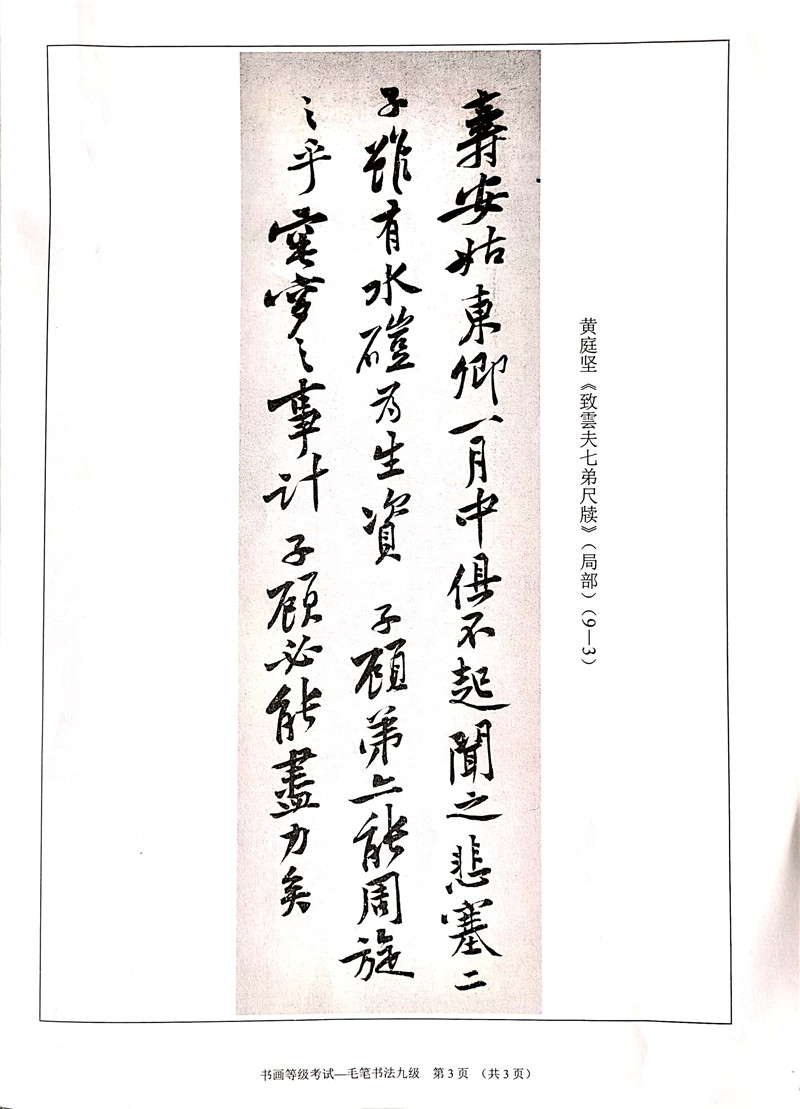 壽安姑東卿一月中俱不起聞之悲塞二
子雖有水磑為生資子顧弟亦能周旋
之乎窀穸之事計子顧必能盡力矣
黄庭坚《致雲夫七弟尺牍》（局部）（9—3）
书画等级考试—毛笔书法九级 第3页 （共3页）